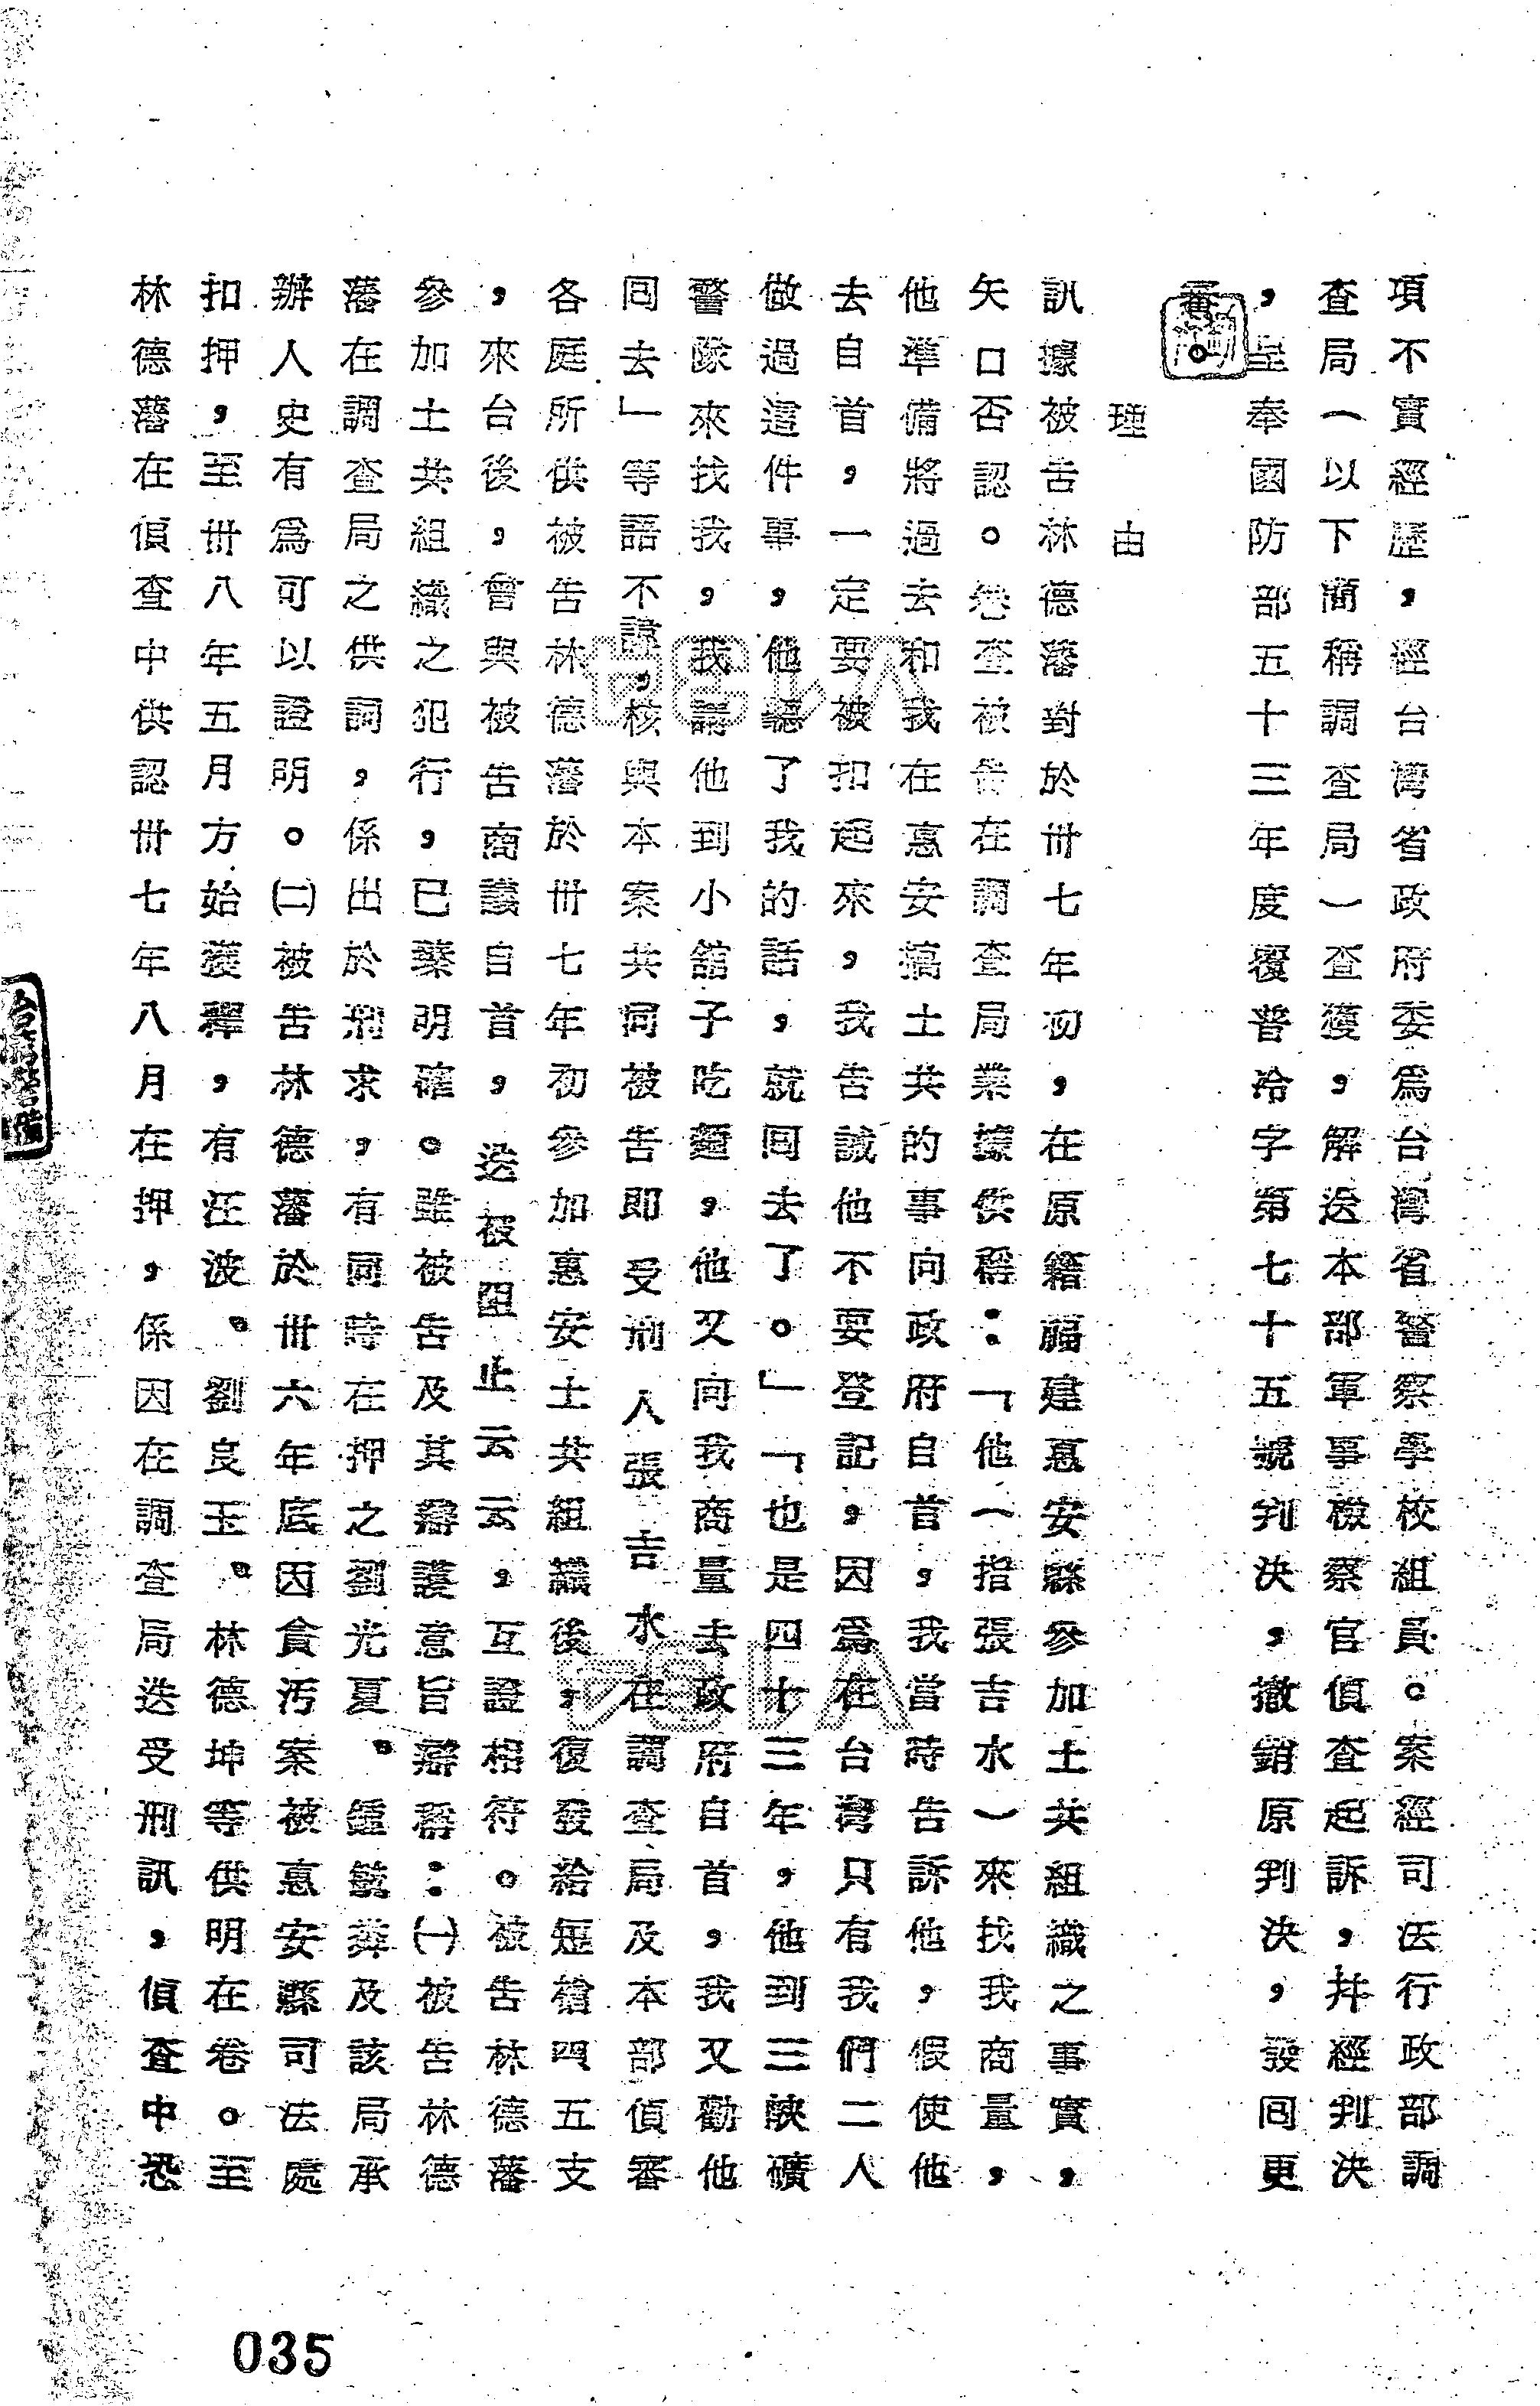 項不實經歷，經台灣省政府委為台灣省警察學校組員。案經司法行政部調
查局（以下簡稱調查局）查獲，解送本部軍事檢察官偵查起訴，并經判決
，呈奉國防部五十三年度覆普洽字第七十五號判決，撤銷原判決，發回更
審。
理由
訊據被告林德藩對於卅七年初，在原籍福建惠安縣參加土共組織之事實，
矢口否認。卷查被告在調查局業據供稱：「他（指張吉水）來找我商量，
他準備將過去和我在惠安搞土共的事向政府自首，我當時告訴他，假使他
去自首，一定要被扣起來，我告誡他不要登記，因為在台灣只有我們二人
做過這件事，他聽了我的話，就回去了。」「也是四十三年，他到三陝礦
警隊來找我，我請他到小館子吃麵，他又向我商量去政府自首，我又勸他
回去」等語不諱，核與本案共同被告即受刑人張吉水在調查局及本部偵審
各庭所供被告林德藩於卅七年初參加惠安土共組織後，復發給短槍四五支
，來台後，曾與被告商議自首，迭被阻止云云，互證相符。被告林德藩
參加土共組織之犯行，已臻明確。雖被告及其辯護意旨辯稱：㈠被告林德
藩在調查局之供詞，係出於刑求，有同時在押之劉光夏、鍾毓犇及該局承
辦人史有為可以證明。㈡被告林德藩於卅六年底因貪污案被惠安縣司法處
扣押，至卅八年五月方始獲釋，有汪波、劉良玉、林德坤等供明在卷。至
林德藩在偵查中供認卅七年八月在押，係因在調查局迭受刑訊，偵查中恐
035